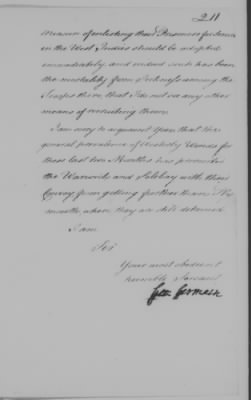 211
measure of enlisting those Prisoners for Service
in the West Indies should be adopted
immediately, and indeed such has been
the mortality from Sickness among the
Troops there, that I do not see any other
means of recruiting them.
I am sorry to acquaint You that the
general prevalence of Westerly Winds for
these last two Months has prevented
the Warwick and Solebay with their
Convoy from getting further than Plymouth
mouth, where they are still detained.
I am
Sir
Your most obedient
humble Servant
Geo: Germain